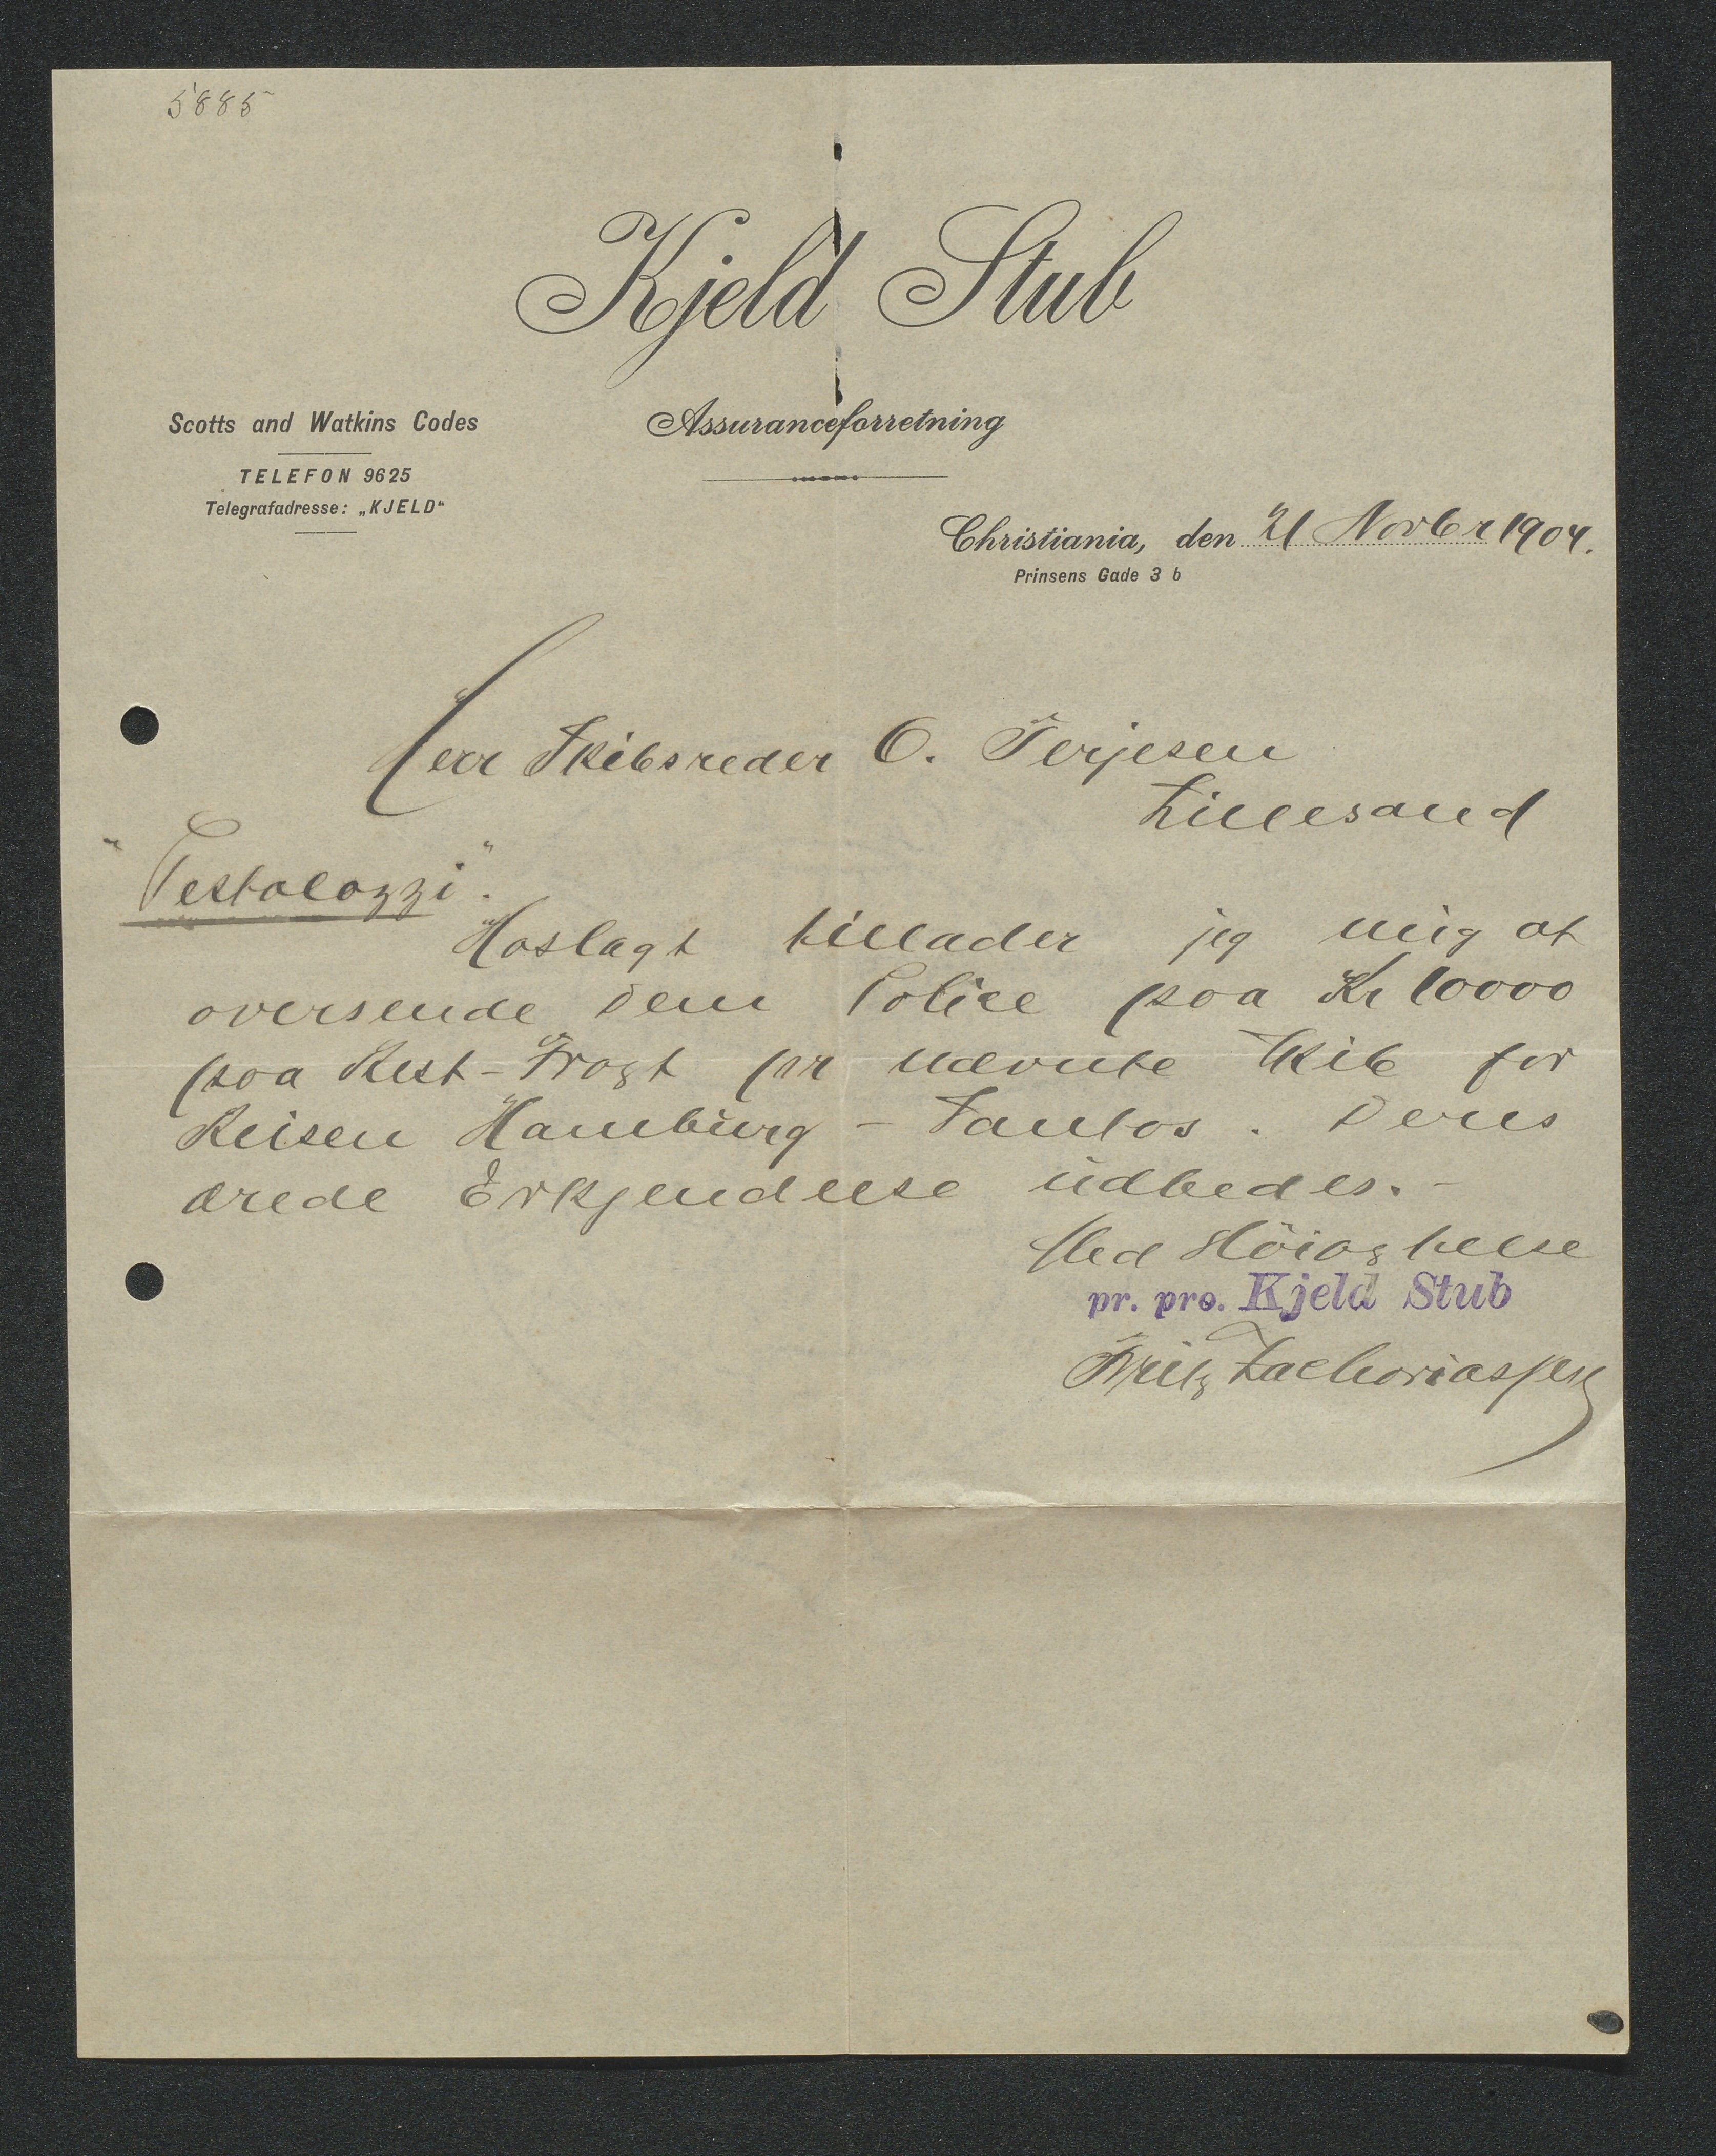 5885
Kjeld Stub
Scotts and Watkins Codes
Assuranceforretning
TELEFON 9625
Telegrafadresse: „KJELD“
Christiania, den 21 Novbr 1904.
Prinsens Gade 3 b
Herr Skibsreder O. Terjesen
Lillesand
"Pestalozzi".
Hoslagt tillader jeg mig at
oversende Dem Police paa Kr 10000
paa Rest-Fragt pr nævnte Skib for
Reisen Hamburg - Santos. Deres
ærede Erkjendelse udbedes.-
Med Høiagtelse
pr. pro. Kjeld Stub
Fritz Zachariassen